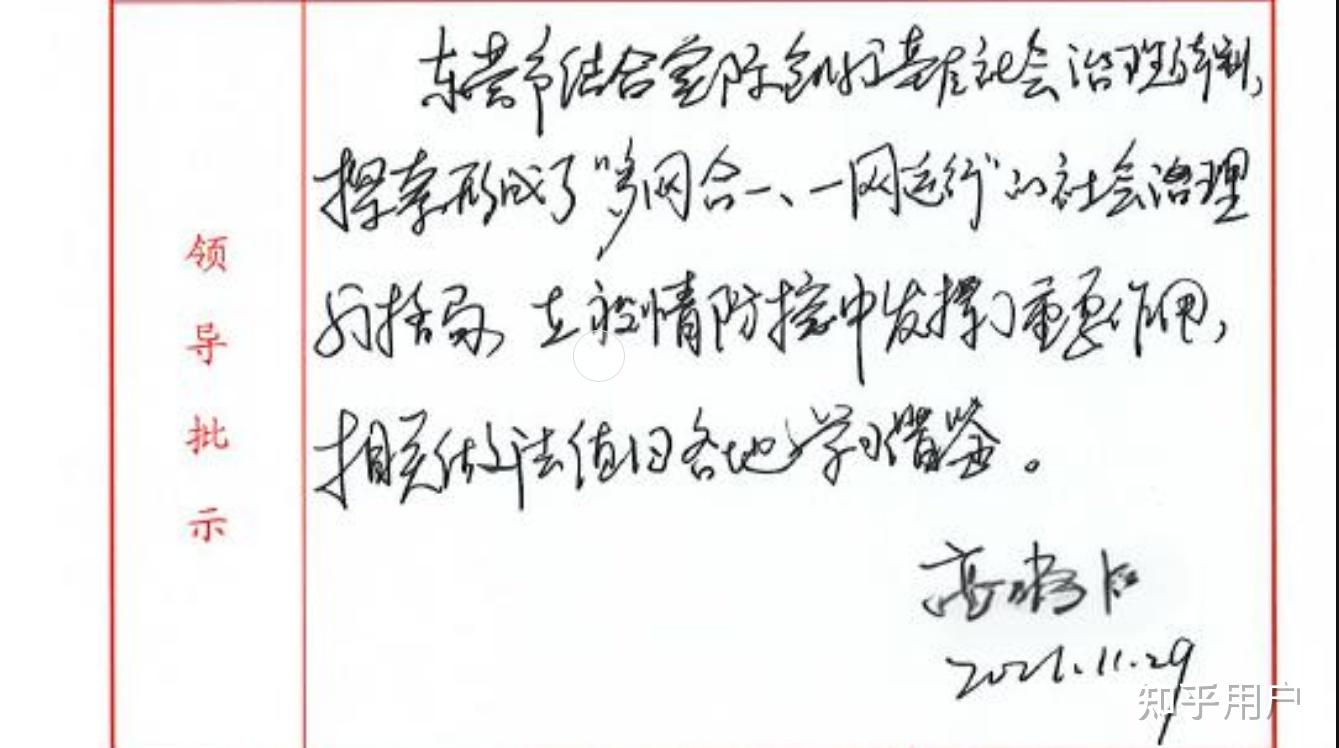 领导批示
东营市结合实际创新基层社会治理体制,
探索形成了“多网合一、一网运行”的社会治理
新格局,在疫情防控中发挥了重要作用,
相关做法值得各地学习借鉴。
2021.11.29
知乎用户